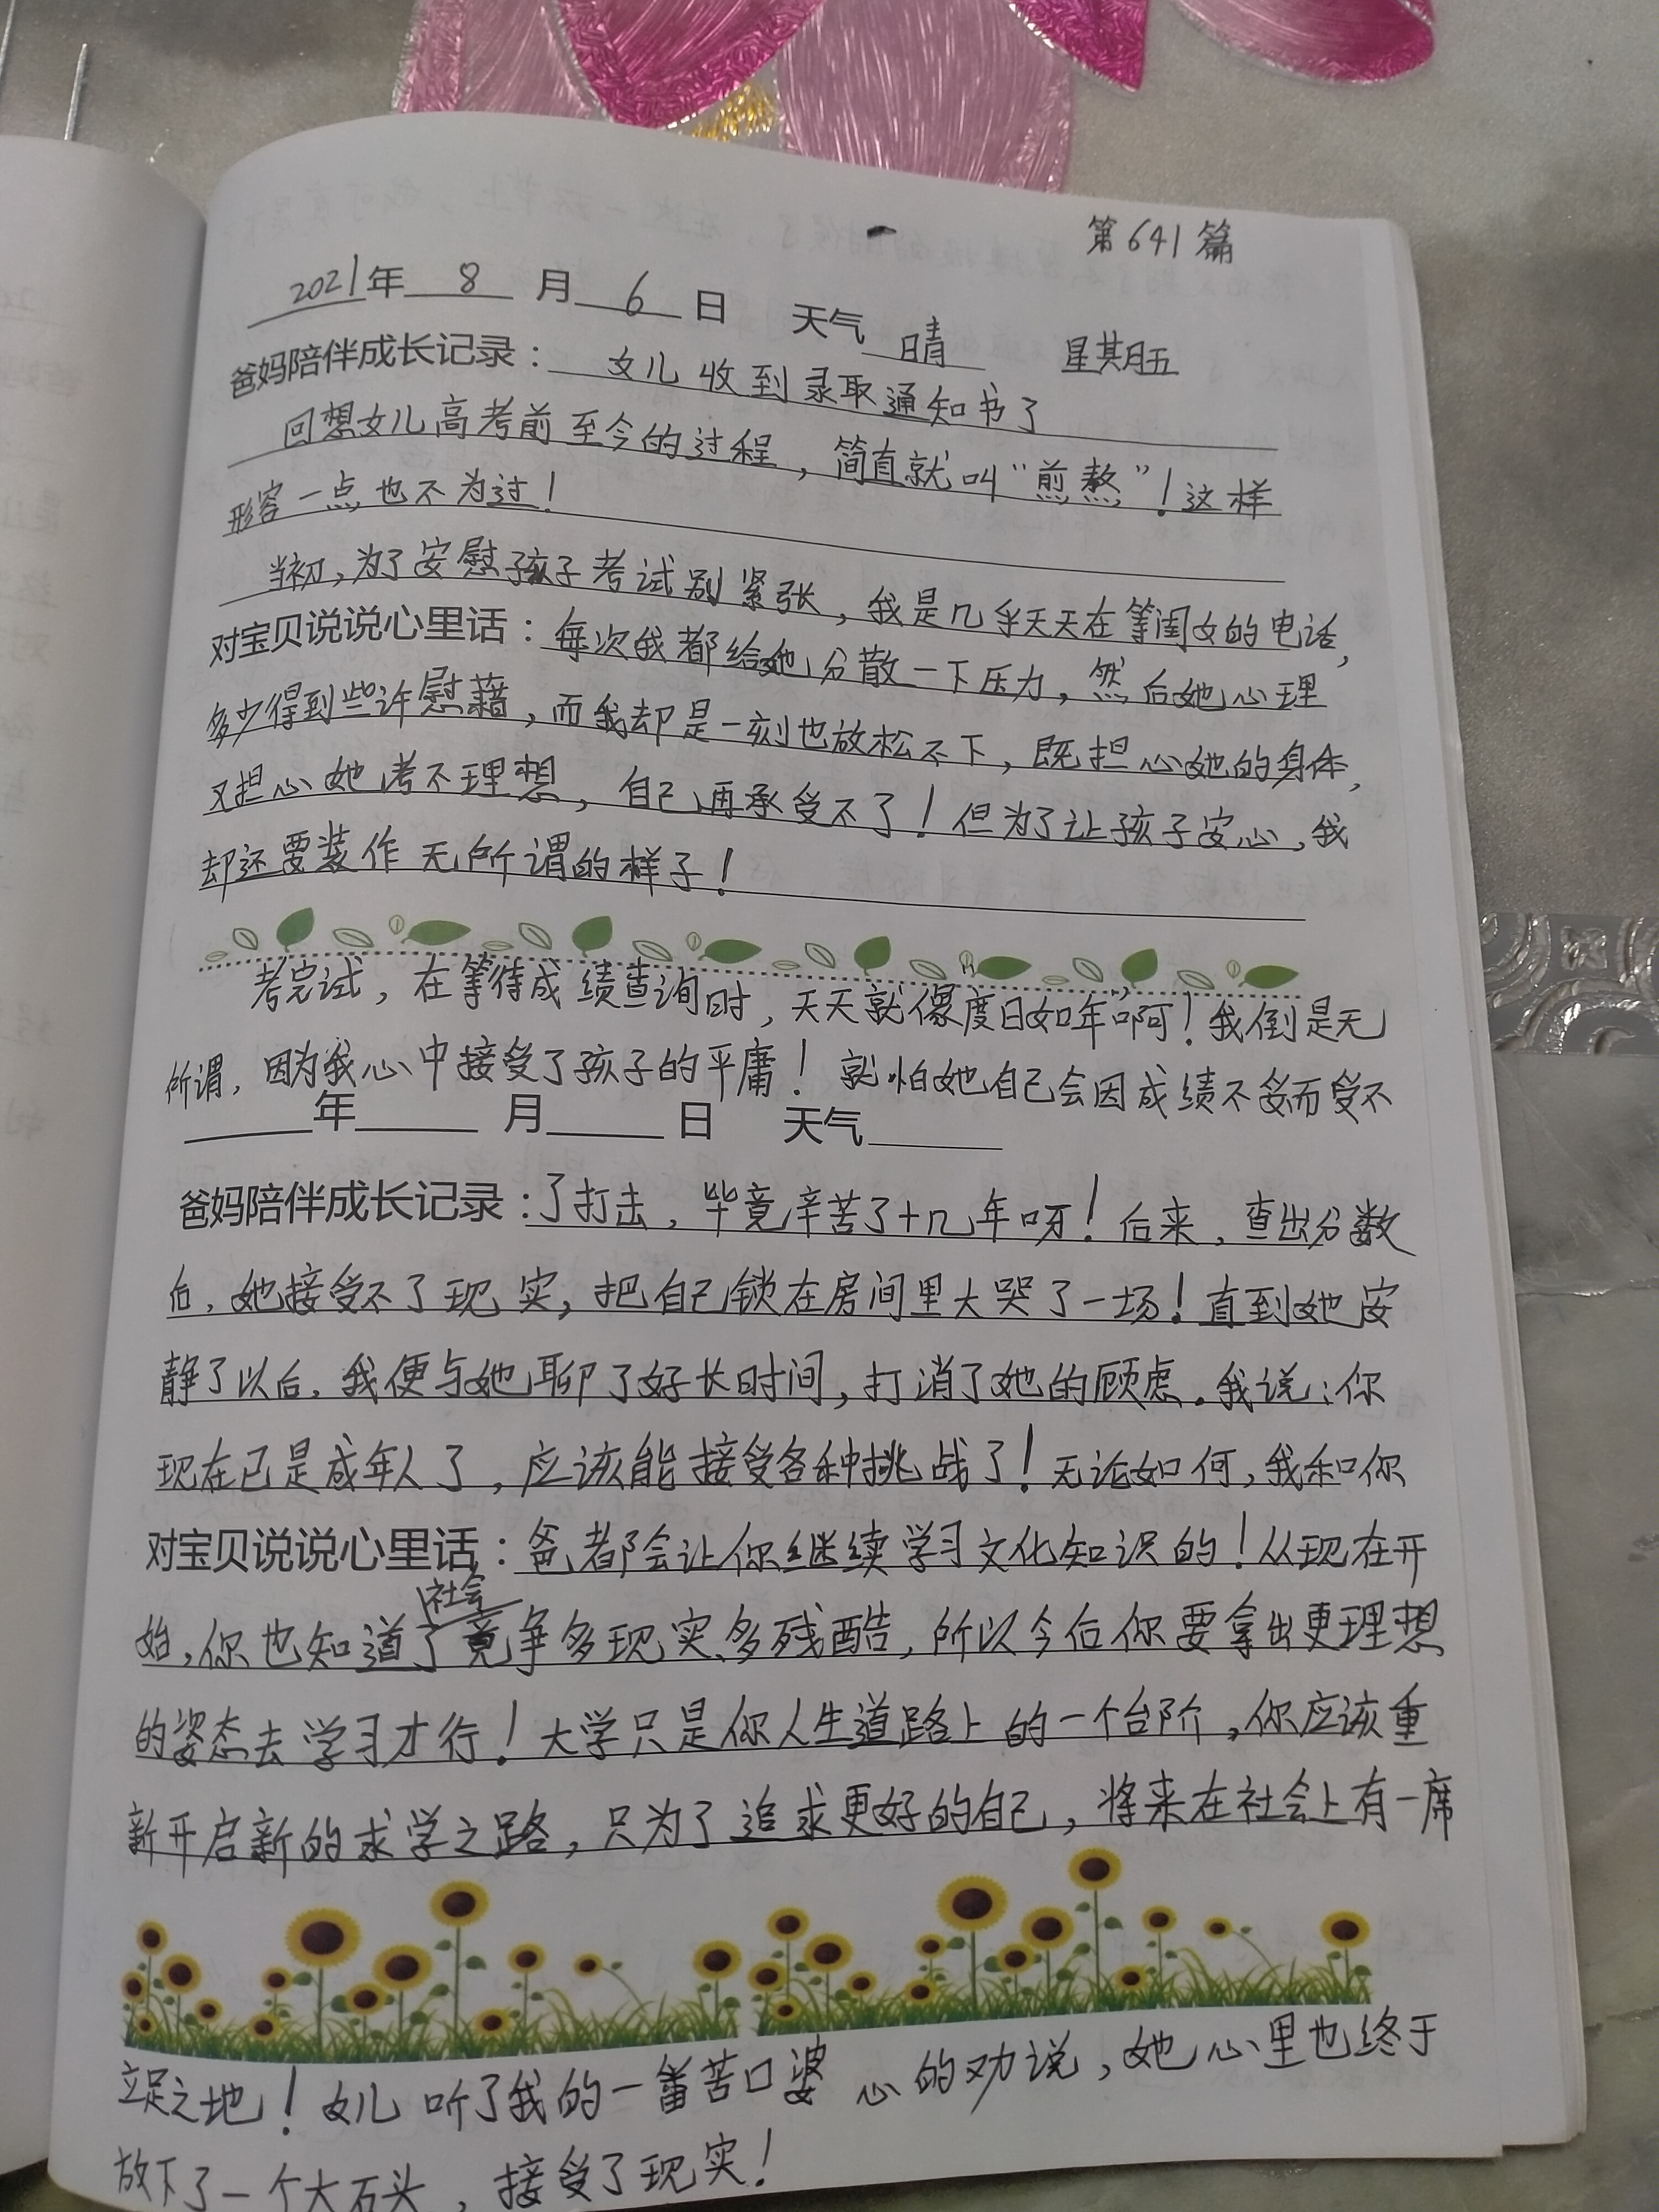 第641篇
2021年 8 月 6 日 天气 晴 星期五
爸妈陪伴成长记录： 女儿收到录取通知书了
回想女儿高考前至今的过程，简直就叫“煎熬”！这样
形容一点也不为过！
当初，为了安慰孩子考试别紧张，我是几乎天天在等闺女的电话，
对宝贝说说心里话：每次我都给她分散一下压力，然后她心理
多少得到些许慰藉，而我却是一刻也放松不下，既担心她的身体，
又担心她考不理想，自己再承受不了！但为了让孩子安心，我
却还要装作无所谓的样子！
考完试，在等待成绩查询时，天天就像度日如年啊！我倒是无
所谓，因为我心中接受了孩子的平庸！就怕她自己会因成绩不妥而受不
年 月 日 天气
爸妈陪伴成长记录：了打击，毕竟辛苦了十几年呀！后来，查出分数
后，她接受不了现实，把自己锁在房间里大哭了一场！直到她安
静了以后，我便与她聊了好长时间，打消了她的顾虑。我说：你
现在已是成年人了，应该能接受各种挑战了！无论如何，我和你
对宝贝说说心里话：爸都会让你继续学习文化知识的！从现在开
始，你也知道了社会竟争多现实、多残酷，所以今后你要拿出更理想
的姿态去学习才行！大学只是你人生道路上的一个台阶，你应该重
新开启新的求学之路，只为了追求更好的自己，将来在社会上有一席
立足之地！女儿听了我的一番苦口婆心的劝说，她心里也终于
放下了一个大石头，接受了现实！